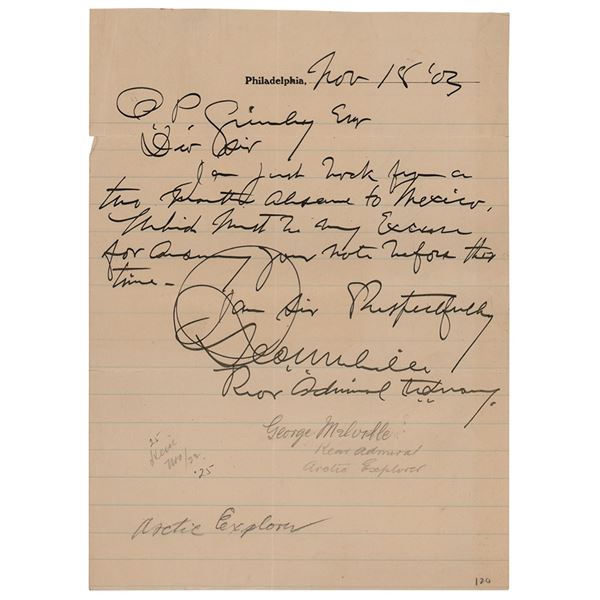 Philadelphia, Nov 18 '03
P. Grimley Esq
Dir Sir
I am just back from a
two months absence to Mexico,
Which must be my Excuse
for answering your note before this
time –
I am Sir Respectfully
Geo W Melville
Rear Admiral U.S. Navy.
George Melville
Rear Admiral
Arctic Explorer
25
.25
Arctic Explorer
120